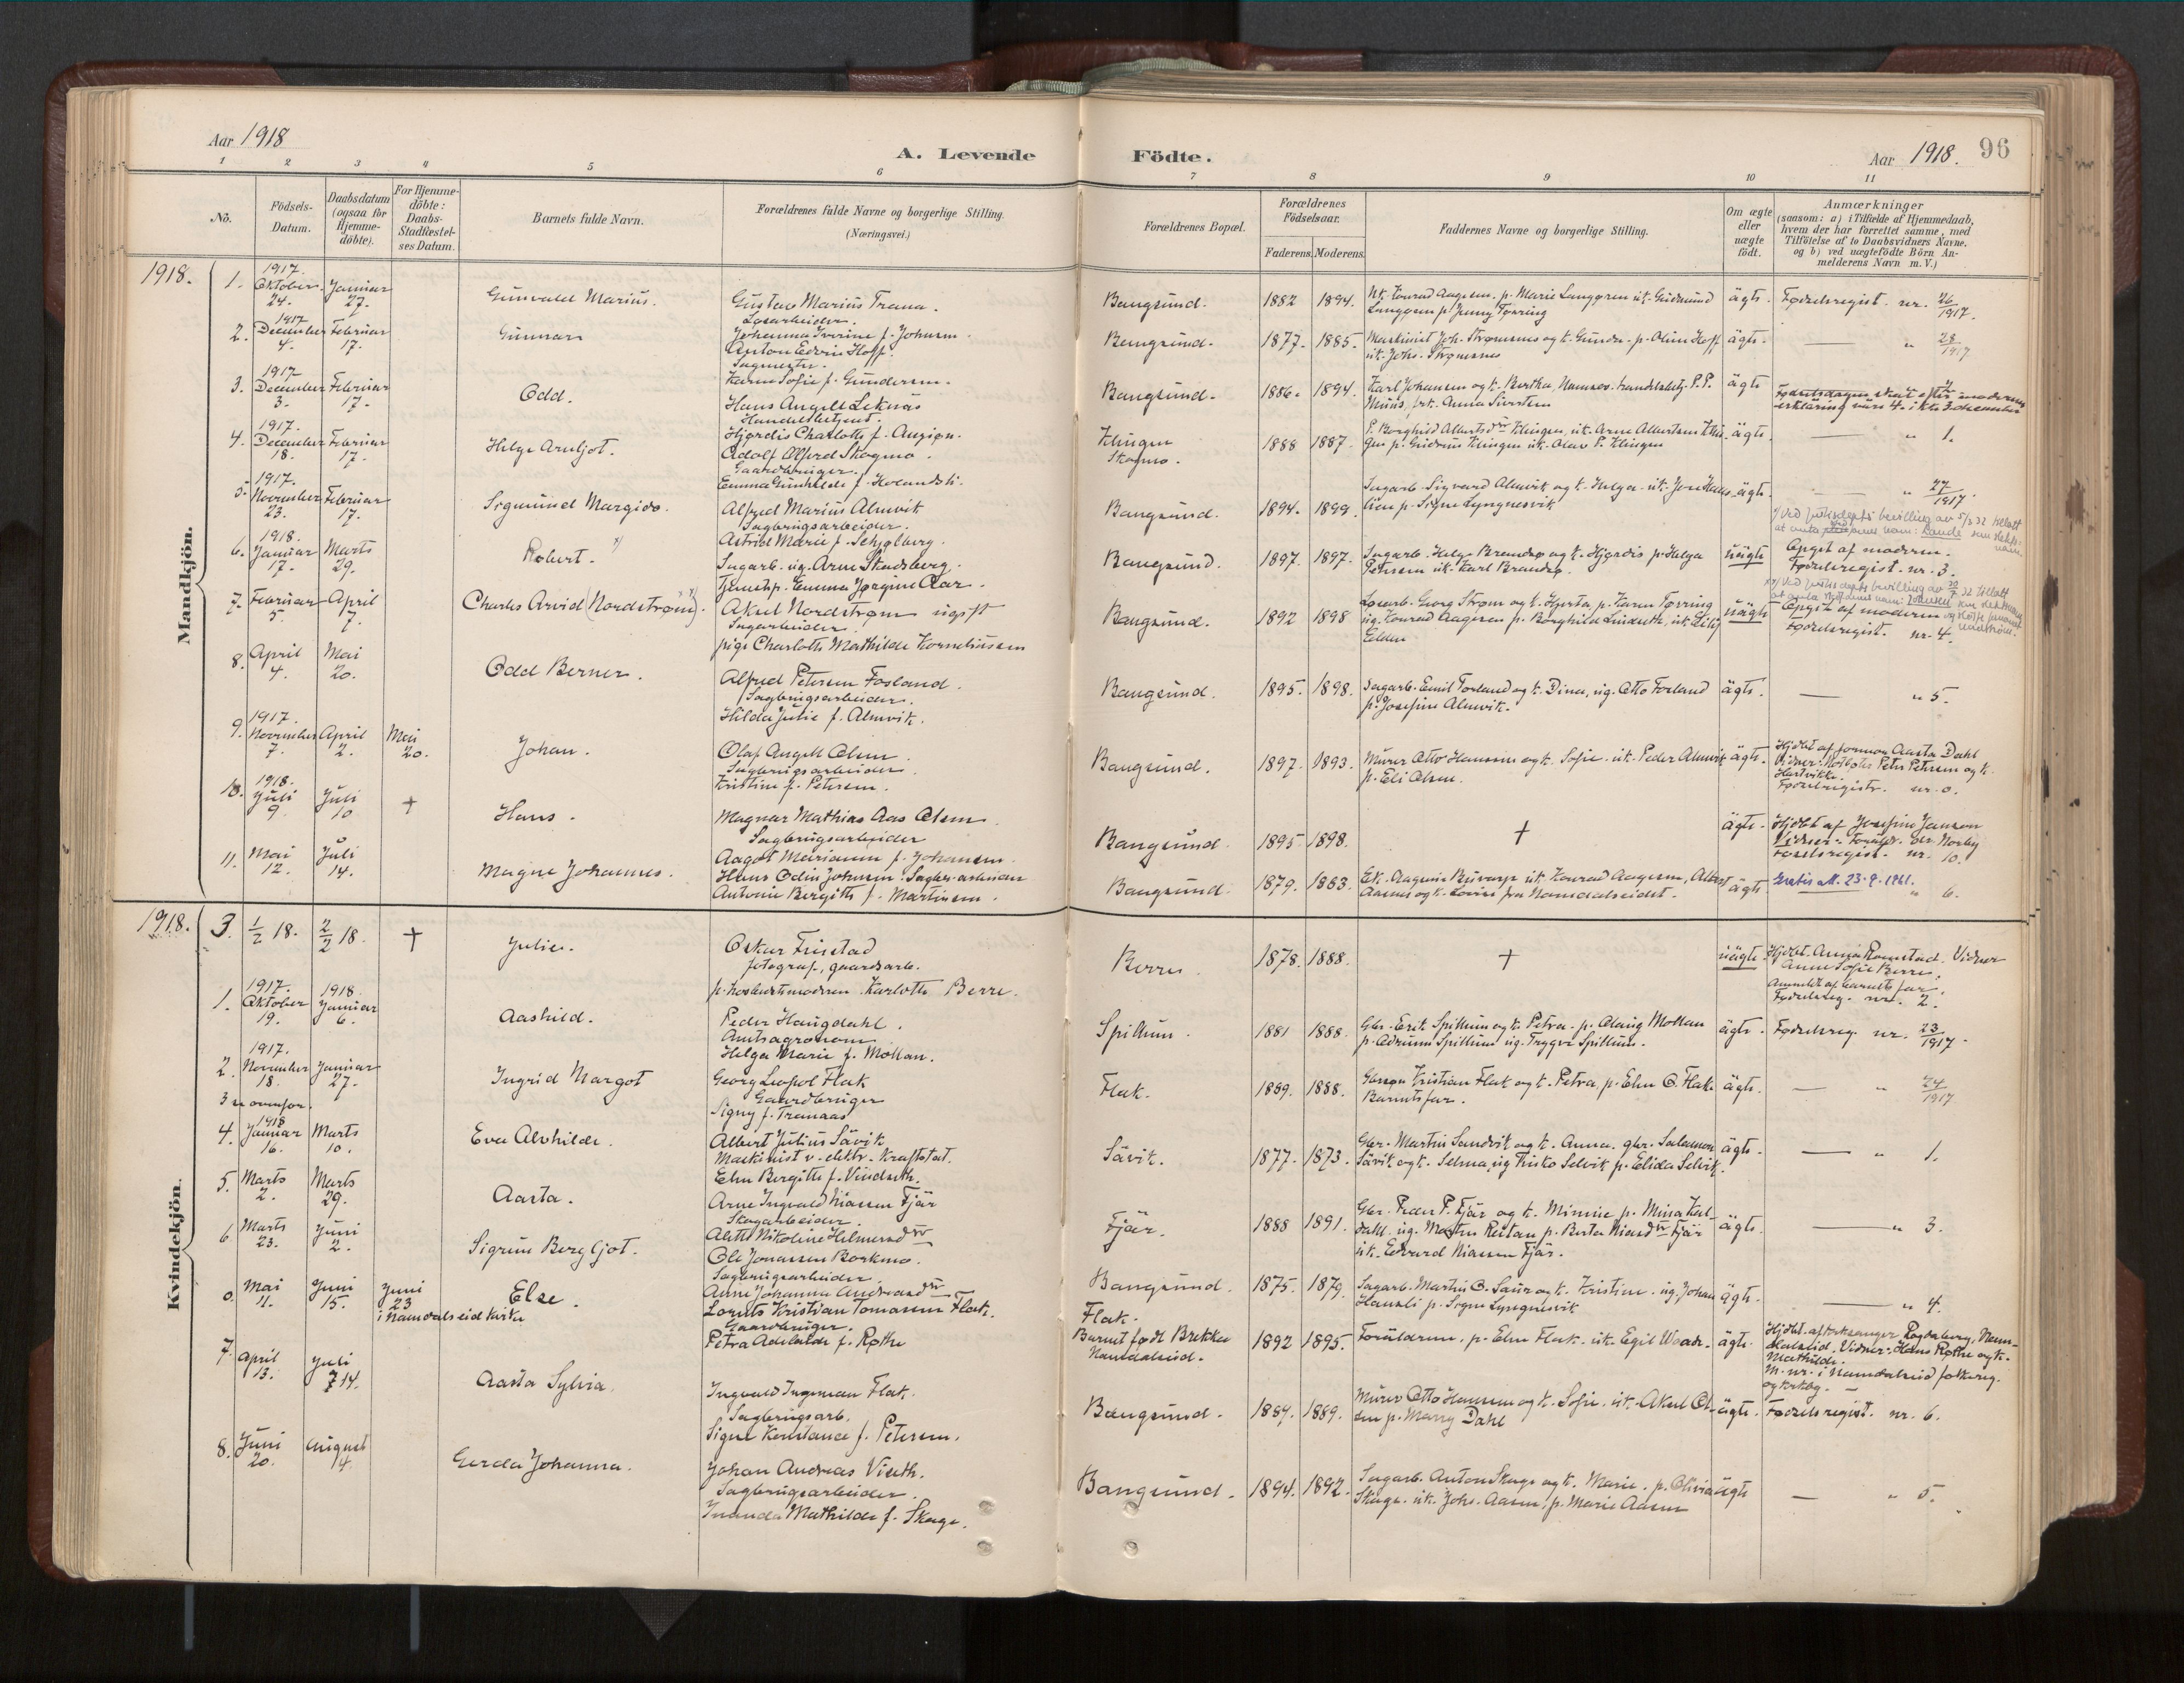 Aar 1918
A. Levende
Födte.
Aar 1918.
96
1 2 3 4 5 6 7 8 9 10 11
No.
Födsels-
Datum.
Daabsdatum
(ogsaa for
Hjemme-
döbte).
For Hjemme-
döbte:
Daabs-
Stadfæstel-
ses Datum.
Barnets fulde Navn.
Forældrenes fulde Navne og borgerlige Stilling.
(Næringsvei.)
Forældrenes Bopæl.
Forældrenes
Födselsaar.
Faderens. Moderens.
Faddernes Navne og borgerlige Stilling.
Om ægte
eller
uægte
født.
Anmærkninger
(saasom: a) i Tilfælde af Hjemmedaab,
hvem der har forrettet samme, med
Tilföielse af to Daabsvidners Navne,
og b) ved uægtefödte Börn An-
melderens Navn m. V.)
Mandkjön.
1918.
1. 1917. Oktober 24. Januar 27.
Gunvald Marius.
Gustav Marius Trana.
Løsarbeider.
Johanna Iverine f. Johnsen.
Bangsund. 1882 1894.
ägte. Fødselsregist. nr. 26/1917.
2. 1917 December 4. Februar 17.
Gunnar
Anton Edvin Hoff.
Sagmester.
Karen Sofie f. Gundersen.
Bangsund. 1877. 1885.
Maskinist Joh. Strømsnes og k. Gunda. p. Oline Hoff
uk. Johs. Strømsnes
ägte. — " 28/1917
3. 1917 December 3. Februar 17.
Odd.
Hans Angell Leknäs
Handelsbetjent.
Hjørdis Charlotte f. Anzjøn.
Bangsund. 1886. 1894.
ägte — " 2
Fødselsdagen skal efter moderens
erklæring være 4. ikke 3. december
4. 1917. December 18. Februar 17.
Helge Arnljot.
Adolf Alfred Skogmo.
Gaardbruger.
Klingen
Skogmo. 1888 1887
ägte. — " 1.
5. 1917. November 23. Februar 17.
Sigmund Margido.
Alfred Marius Almvik
Sagbrugsarbeider.
Astrid Marie f. Schjølberg.
Bangsund. 1894. 1899.
Sagarb. Sigvard Almvik og k. Helga. uk. Jon Hans-
lien p. Signe Lyngnesvik
ägte. — " 27/1917.
6. 1918. Januar 17. Marts 29.
Robert. x)
Sagarb. ug. Arne Skadsberg.
Tjenestp. Emma Jørgine Aar.
Bangsund. 1897. 1897.
Sagarb. Helge Brandsø og k. Hjørdis p. Helga
Petersen uk. Karl Brandsø.
uägte
Opgit af moderen.
Fødselsregist. nr. 3.
7. Februar 5. April 7.
Charles Arvid (Nordstrøm xx).
Aksel Nordstrøm ugift
Sagarbeider.
pige Charlotte Mathilde Korneliussen
Bangsund. 1892 1898
Løsarb. Georg Strøm og k. Hjerta, p. Karen Tørring
ug. Konrad Aagesen p. Borghild Lindseth, uk. Eilif
Elden
uägte
Opgit af moderen
Fødselsregist. nr. 4.
8. April 4. Mai 20.
Odd Berner.
Alfred Petersen Fosland.
Sagbrugsarbeider.
Hilda Julie f. Almvik.
Bangsund. 1895. 1898.
p. Josefine Almvik.
ägte. — " 5.
9. 1917. November 7. April 2. Mai 20.
Johan.
Olaf Angell Olsen.
Sagbrugsarbeider.
Kristine f. Petersen.
Bangsund. 1897. 1893.
Murer Otto Hanssen og k. Sofie. uk. Peder Almvik
p. Eli Olsen.
ägte. Hjdbt af jormor Aasta Dahl
Hartvikke.
Fødselregistr. nr. 0.
10. 1918. Juli 9 Juli 10 +
Hans.
Magnar Mathias Aas Olsen.
Sagbrugsarbeider
Aagot Marianne f. Johansen.
Bangsund. 1895. 1898. +
ägte. Hjdbt af Josefine Janson
Fødselsregist. nr. 10.
11. Mai 12. Juli 14.
Magne Johannes.
Hans Odin Johnsen. Sagbr. arbeider
Antonie Bergitte f. Martinsen.
Bangsund. 1879. 1883.
ägte Gratis att. 23.9.1961. " 6.
Kvindekjön.
1918. 3. 1/2 18. 2/2 18. +
Julie.
Oskar Finstad
fotograf, gaardsarb.
p. Karlotte Berre.
Berre 1878. 1888. +
uägte. Hjdbt. Anna Ramstad. Vidner
Anne Sofie Berre.
Anmeldt af barnets far.
Fødselsreg. nr. 2.
1. 1917. Oktober 19. 1918. Januar 6.
Aashild.
Peder Haugdahl.
Amtsagronom
Helga Marie f. Mollan.
Spillum. 1881 1888.
Gbr. Erik Spillum og k. Petra. p. Olaug Mollan
p. Adrianna Spillum ug. Trygve Spillum.
ägte. Fødselsreg. nr. 23/1917.
2. 1917. November 18. Januar 27.
Ingrid Margot
Georg Leopol Flak
Gaardbruger
Signy f. Tranaas
Flak. 1889. 1888.
Kristian Flak og k. Petra, p. Elen O. Flak.
Barnets far.
ägte. — " 24/1917
3 se ovenfor.
4. 1918 Januar 16. Marts 10.
Eva Alvhilde.
Albert Julius Sävik
Maskinist v. elektr. Kraftstat.
Elen Bergitte f. Vindseth.
Sävik. 1877. 1873.
Gbr. Martin Sandvik og k. Anna. gbr. Salamon
Sävik og k. Selma, ug Frisko Selvik p. Elida Selvik.
ägte. — " 1.
5. Marts 2. Marts 29.
Aasta.
Arne Ingvald Niassen Fjär
Skogarbeider.
Alette Nikoline Hilmersdtr
Fjär. 1888 1891.
Gbr. Peder P. Fjär og k. Minnie p. Mina Kal-
dahl. ug. Morten Reitan p. Berta Niasdtr Fjär
uk. Edvard Niassen Fjär.
ägte. — " 3.
6. Marts 23. Juni 2.
Sigrun Bergljot.
Ole Jonassen Borkmo.
Sagbrugsarbeider.
Anne Johanna Andreasdtr
Bangsund. 1875. 1879.
Sagarb. Martin O. Saur og k. Kristine. ug. Johan
Hansli p. Signe Lyngnesvik
ägte. — " 4.
0. Mai 11. Juni 15. Juni 23
i Namdalseid kirke
Else.
Lorents Kristian Tomassen Flak.
Gaardbruger.
Petra Adelaide f. Røthe
Flak.
Barnet født Brekka
Namdalseid. 1892 1895.
Forälderne, p. Elen Flak. uk. Egil Waade.
ägte. Hjdbt. af kirkesanger Rogdaberg, Nam-
dalseid. Vidner: Hans Røthe og k.
Mathilde.
M. nr. i Namdalseid folkereg.
og kirkebg. —
7. April 13. Juli 7 14.
Aasta Sylvia.
Ingvald Ingeman Flak.
Sagbrugsarb.
Signe Konstance f. Petersen.
Bangsund. 1884. 1889.
Murer Otto Hanssen og k. Sofie. uk. Aksel Ol-
sen p. Marry Dahl
ägte. Fødselsregist. nr. 6.
8. Juni 20. August 4.
Gerda Johanna.
Johan Andreas Viseth.
Sagbrugsarbeider.
Inanda Mathilde f. Skage.
Bangsund. 1894. 1892.
Sagarb. Anton Skage og k. Marie. p. Olivia
Skage. uk. Johs. Aasen, p. Marie Aasen
ägte — " 5.